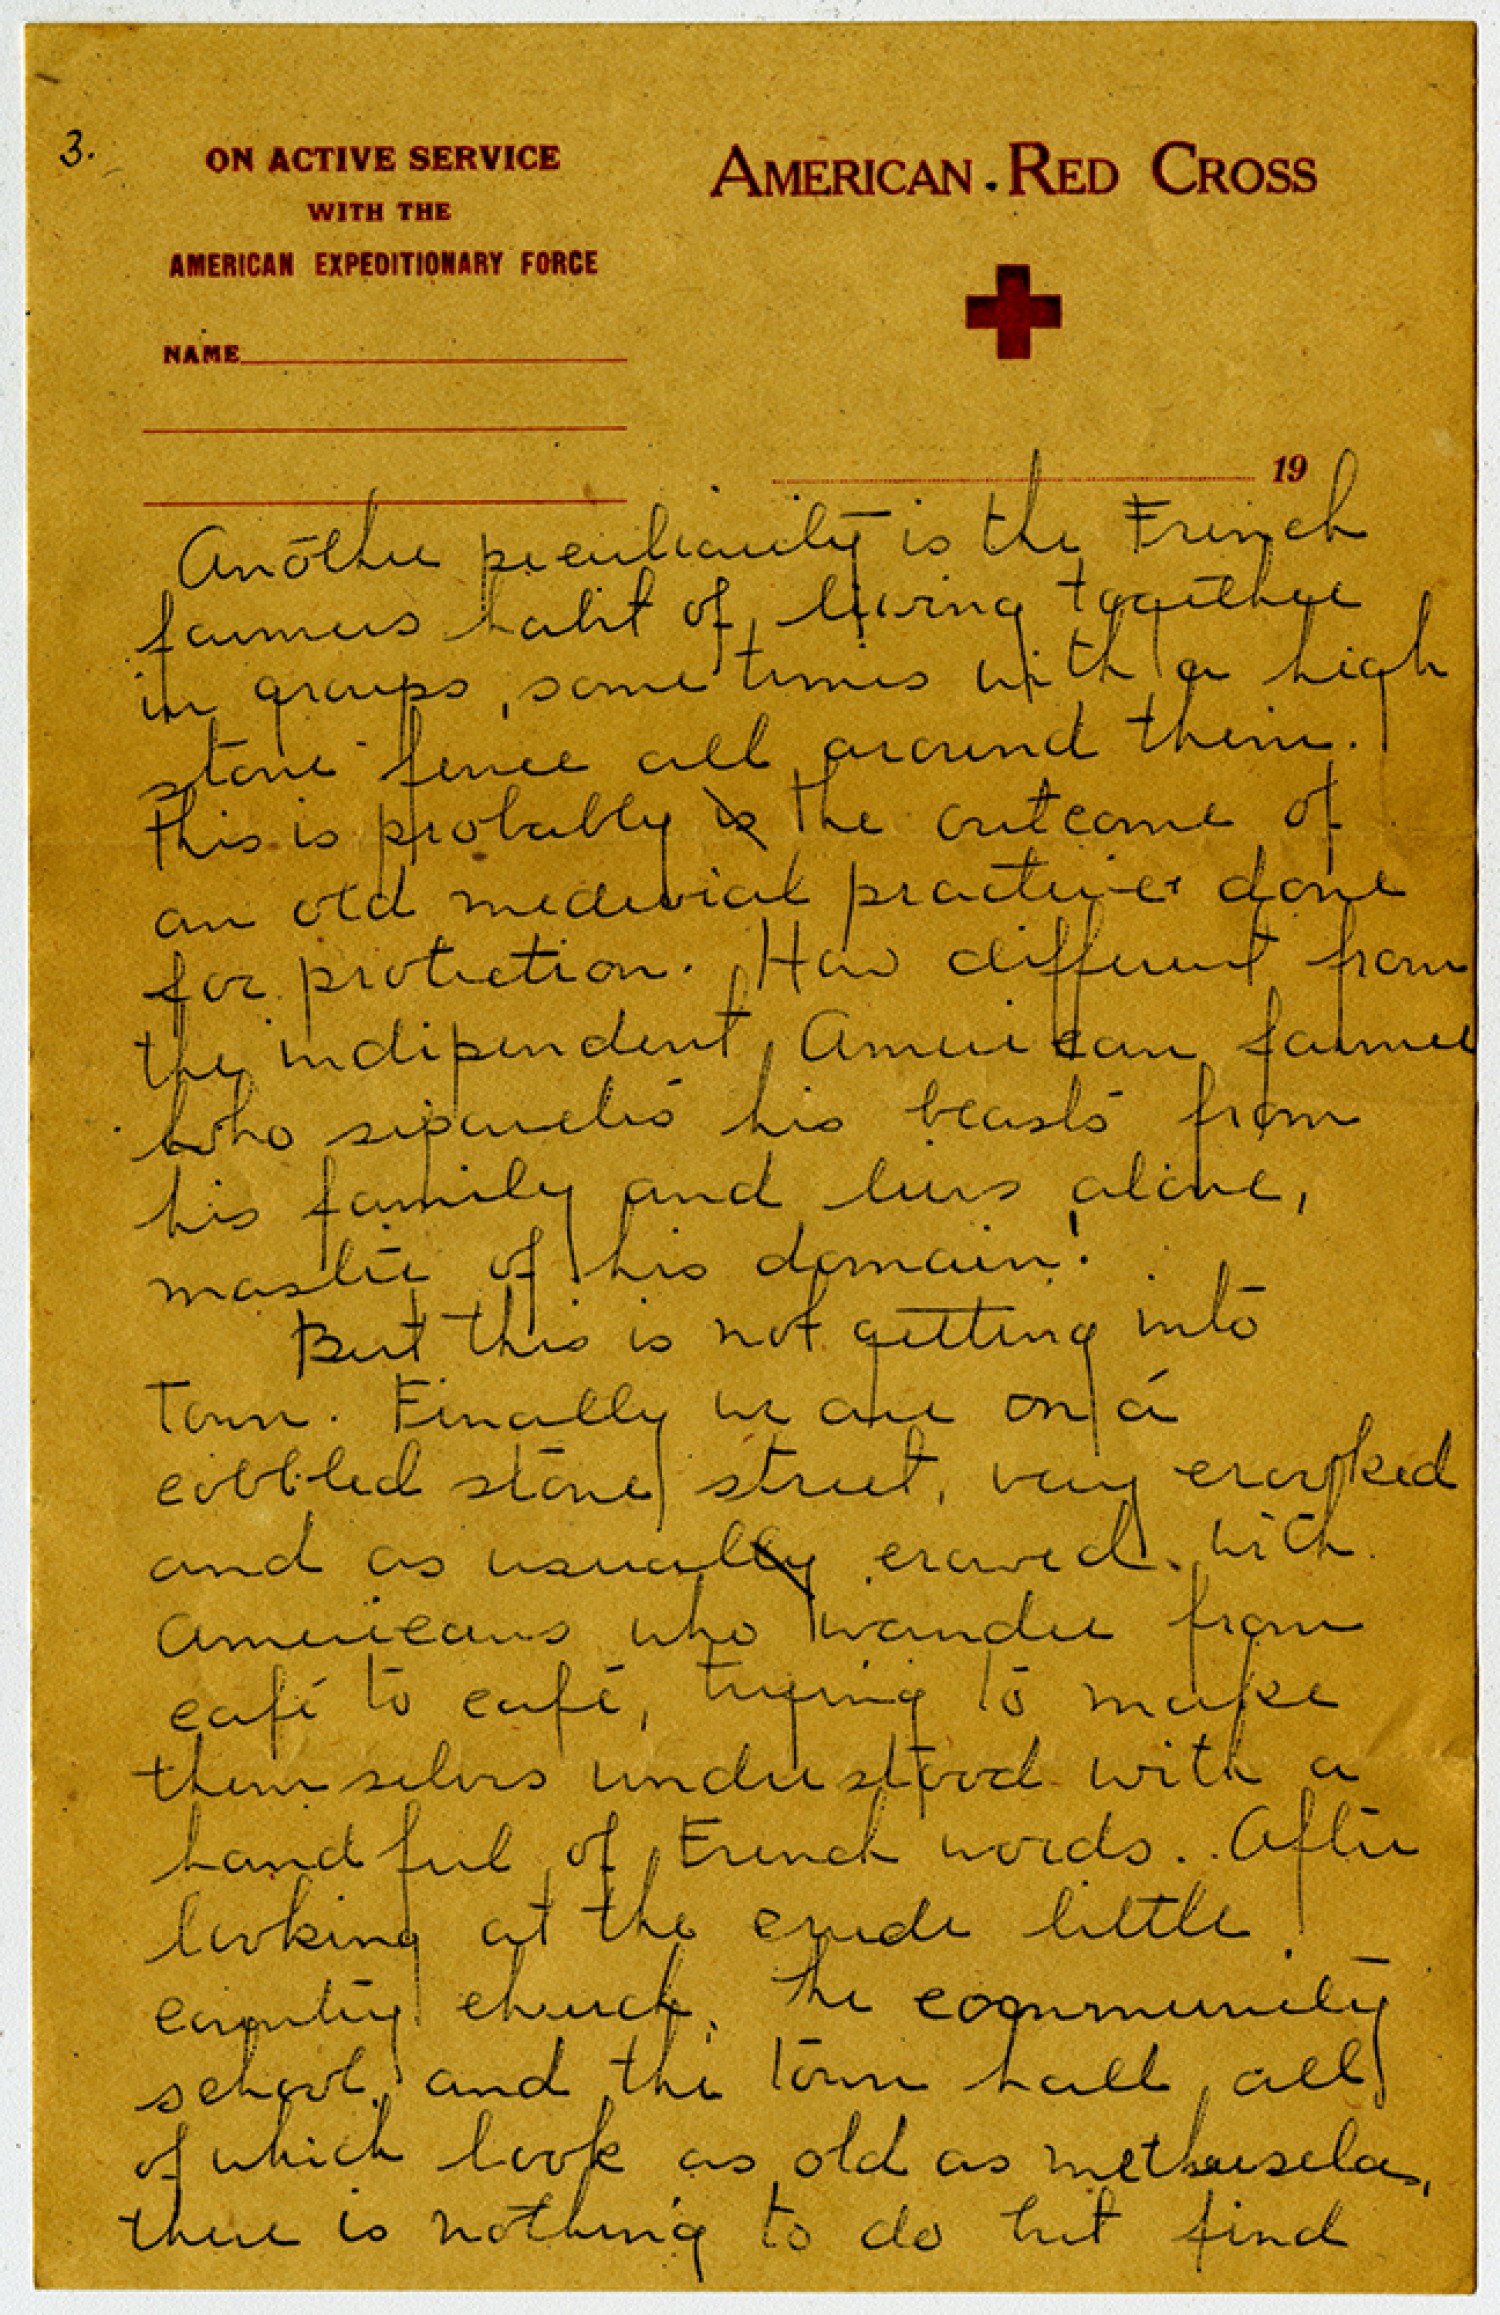 3.
ON ACTIVE SERVICE
WITH THE
AMERICAN EXPEDITIONARY FORCE
NAME
AMERICAN RED CROSS
19
Another peculiarity is the French
farmers habit of living together
in groups, sometimes with a high
stone fence all around them.
This is probably is the outcome of
an old medevial practice done
for protection. How different from
the independent American farmer
who separates his beasts from
his family and lives alone,
master of his domain.
But this is not getting into
Town. Finally we are on a
cobbled stone street, very crooked
and as usually crowed with
Americans who wander from
café to café, trying to make
themselves understood with a
handful of French words. After
looking at the crude little
country church, the community
school, and the town hall, all
of which look as old as methuselas,
there is nothing to do but find